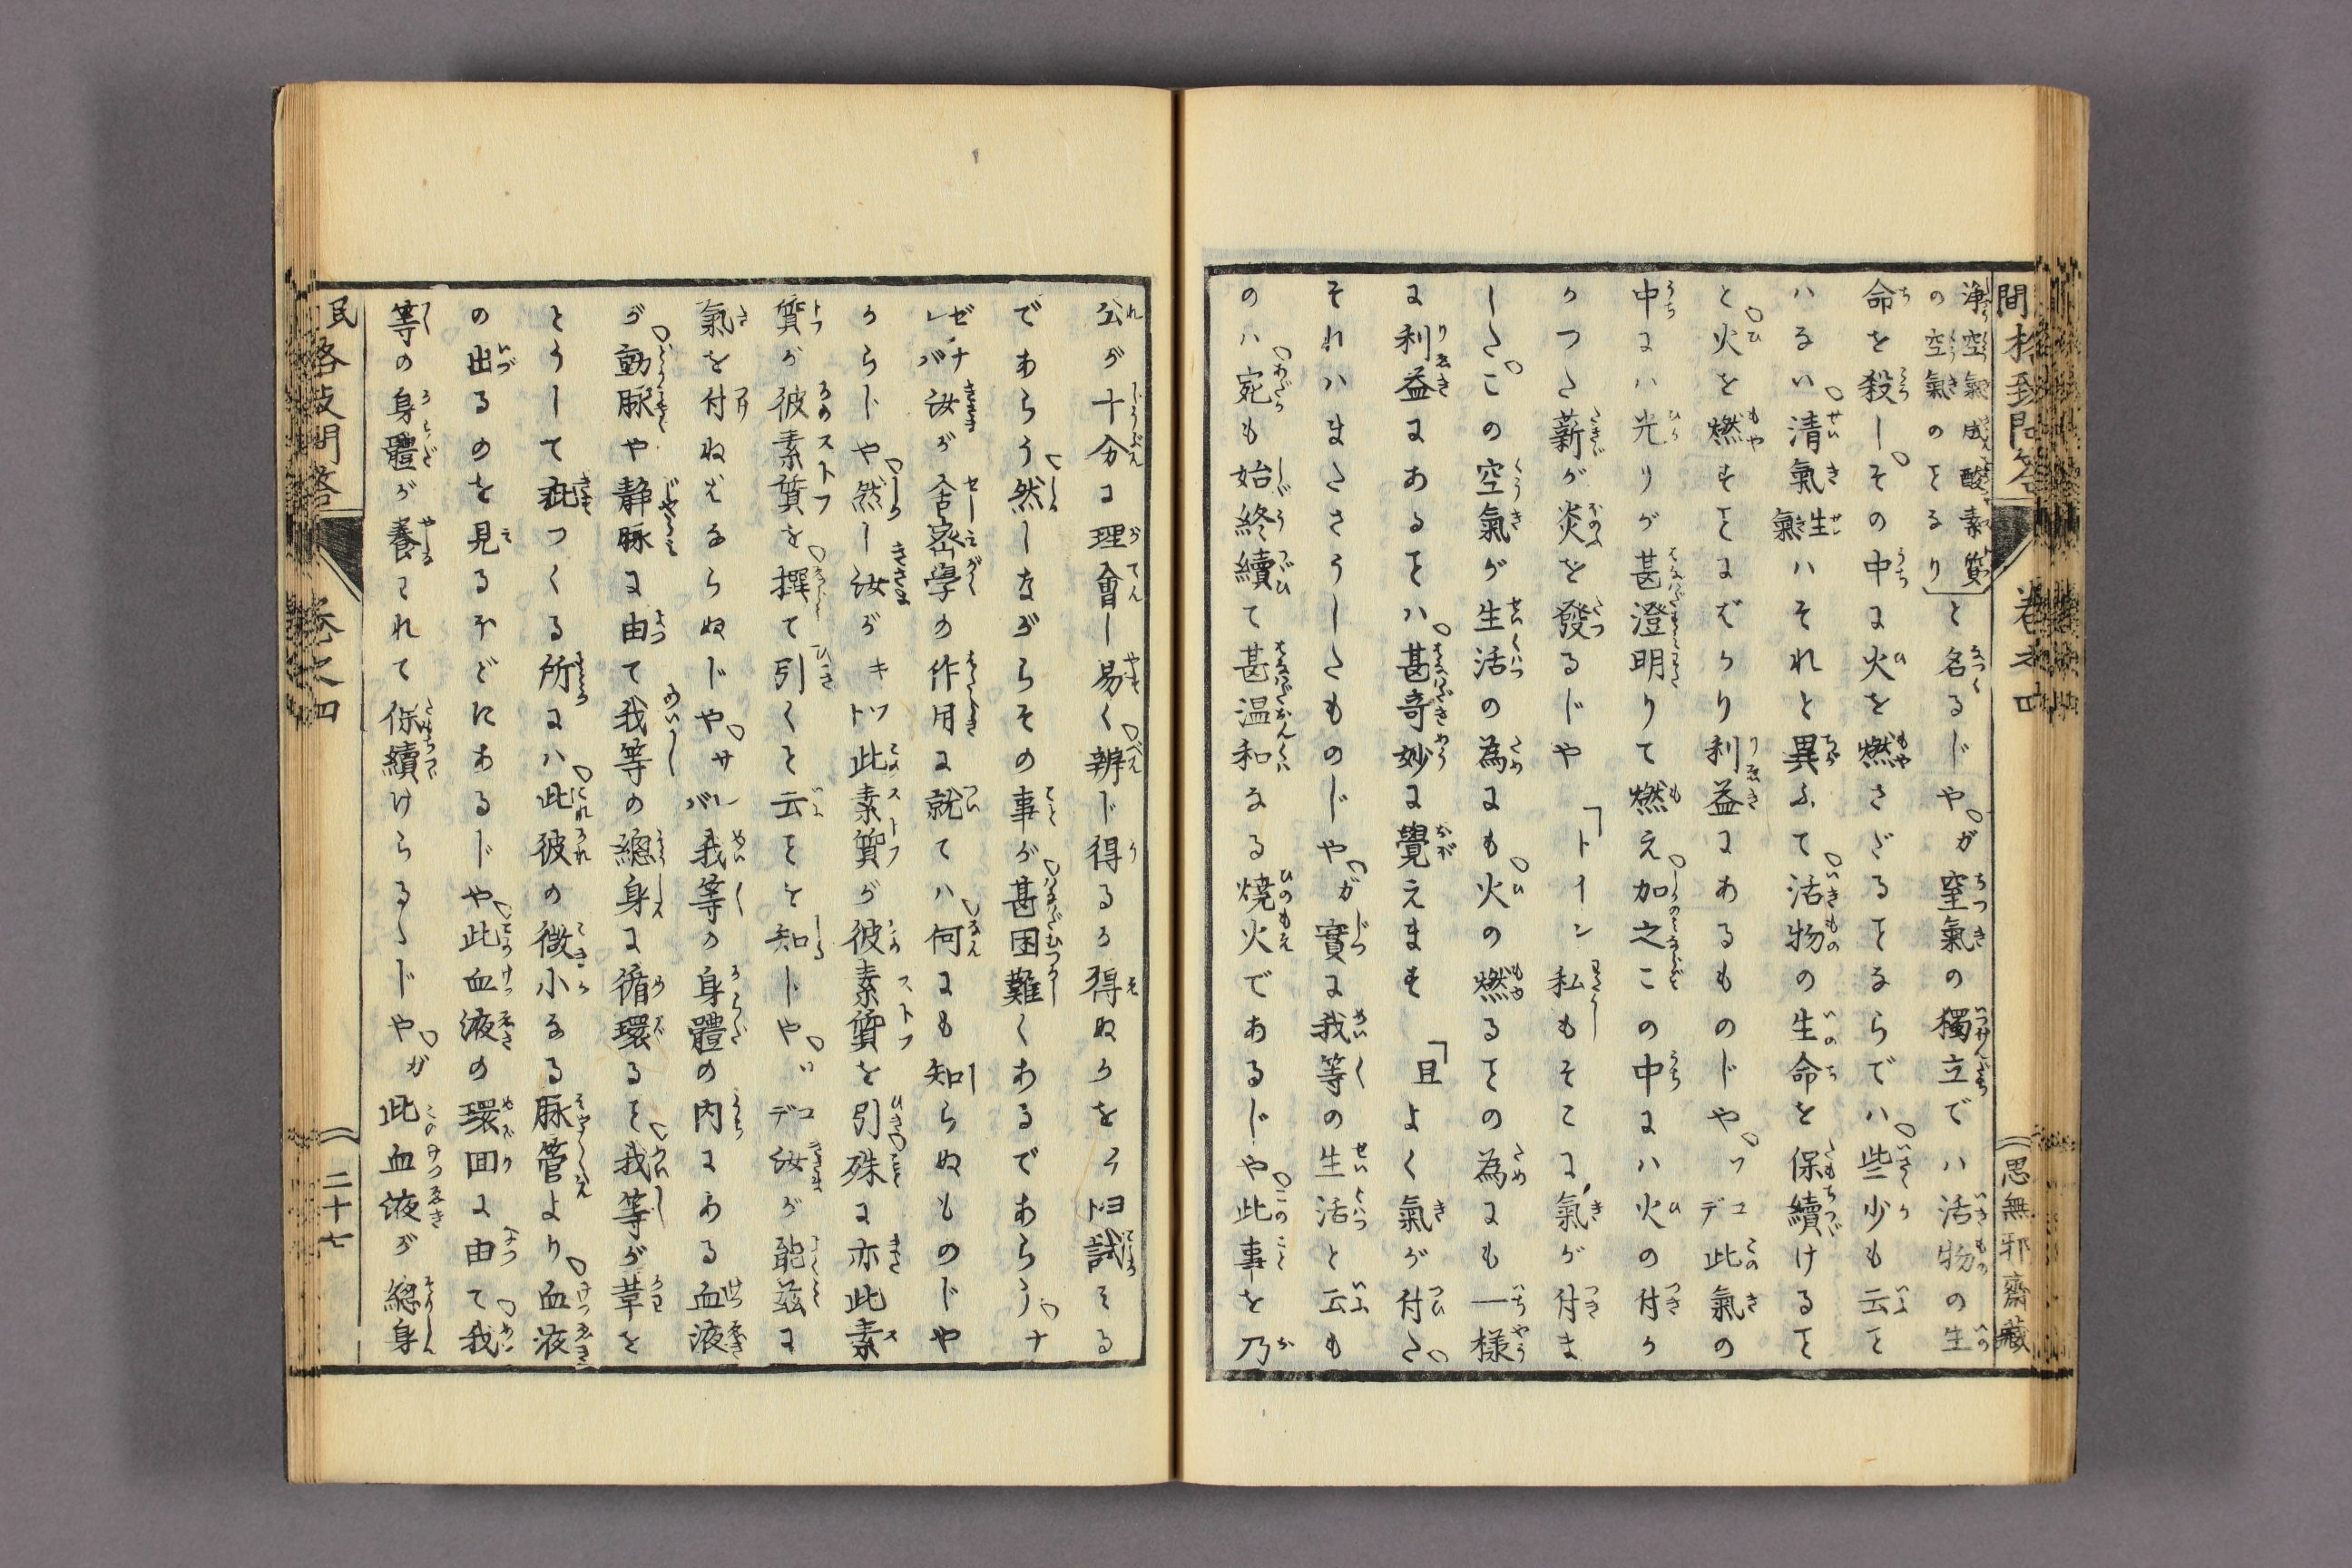 間格致問答 卷之四 思無邪齋藏
浄空氣成酸素質
の空氣のとるり
と名るじや。が窒氣の獨立でハ活物の生
命を殺し。その中に火を燃さざるでるならでハ。些少も云で
ハるい。清氣生氣ハそれと異ふて。活物の生命を保續けるで
と。火を燃すでにばかり利益にあるものじや。ワデユ此氣の
中にハ光りが甚澄明りて燃え。加之この中にハ火の付か
かつた薪が炎を發るじや「トイン私もそこに。氣が付ま
した。この空氣が生活の為にも。火の燃るでの為にも一様
に利益にあるでハ。甚奇妙に覺えます「且よく氣が付た。
それハまたさうしたものじや。が實に我等の生活と云も
のハ。宛も始終續て甚温和なる焼火であるじや。此事を乃
公が十分に理會し易く。辨じ得るか得ぬかをラヨト試する
であらう。然しながらその事が。甚困難くあるであらう。ナ
ゼナレバ汝が舎密學の作用に就てハ。何にも知らぬものじや
からじや。然し汝がキツト此素質が彼素質を引。殊に亦此素
質が彼素質を。撰て引くと云でを知じや。ソコデ汝が能玆に
氣を付ねばならぬじや。サレバ我等の身體の内にある血液
が。動脉や静脉に由て我等の總身に循環るで。我等が葦を
とうして疵つくる所にハ。此彼の微小なる脉管より。血液
の出るのを見るほどにあるじや。此血液の環囬に由て。我
等の身體が養はれて保續けらるゝじや。が此血液が總身
民格致問答 卷之四 二十七